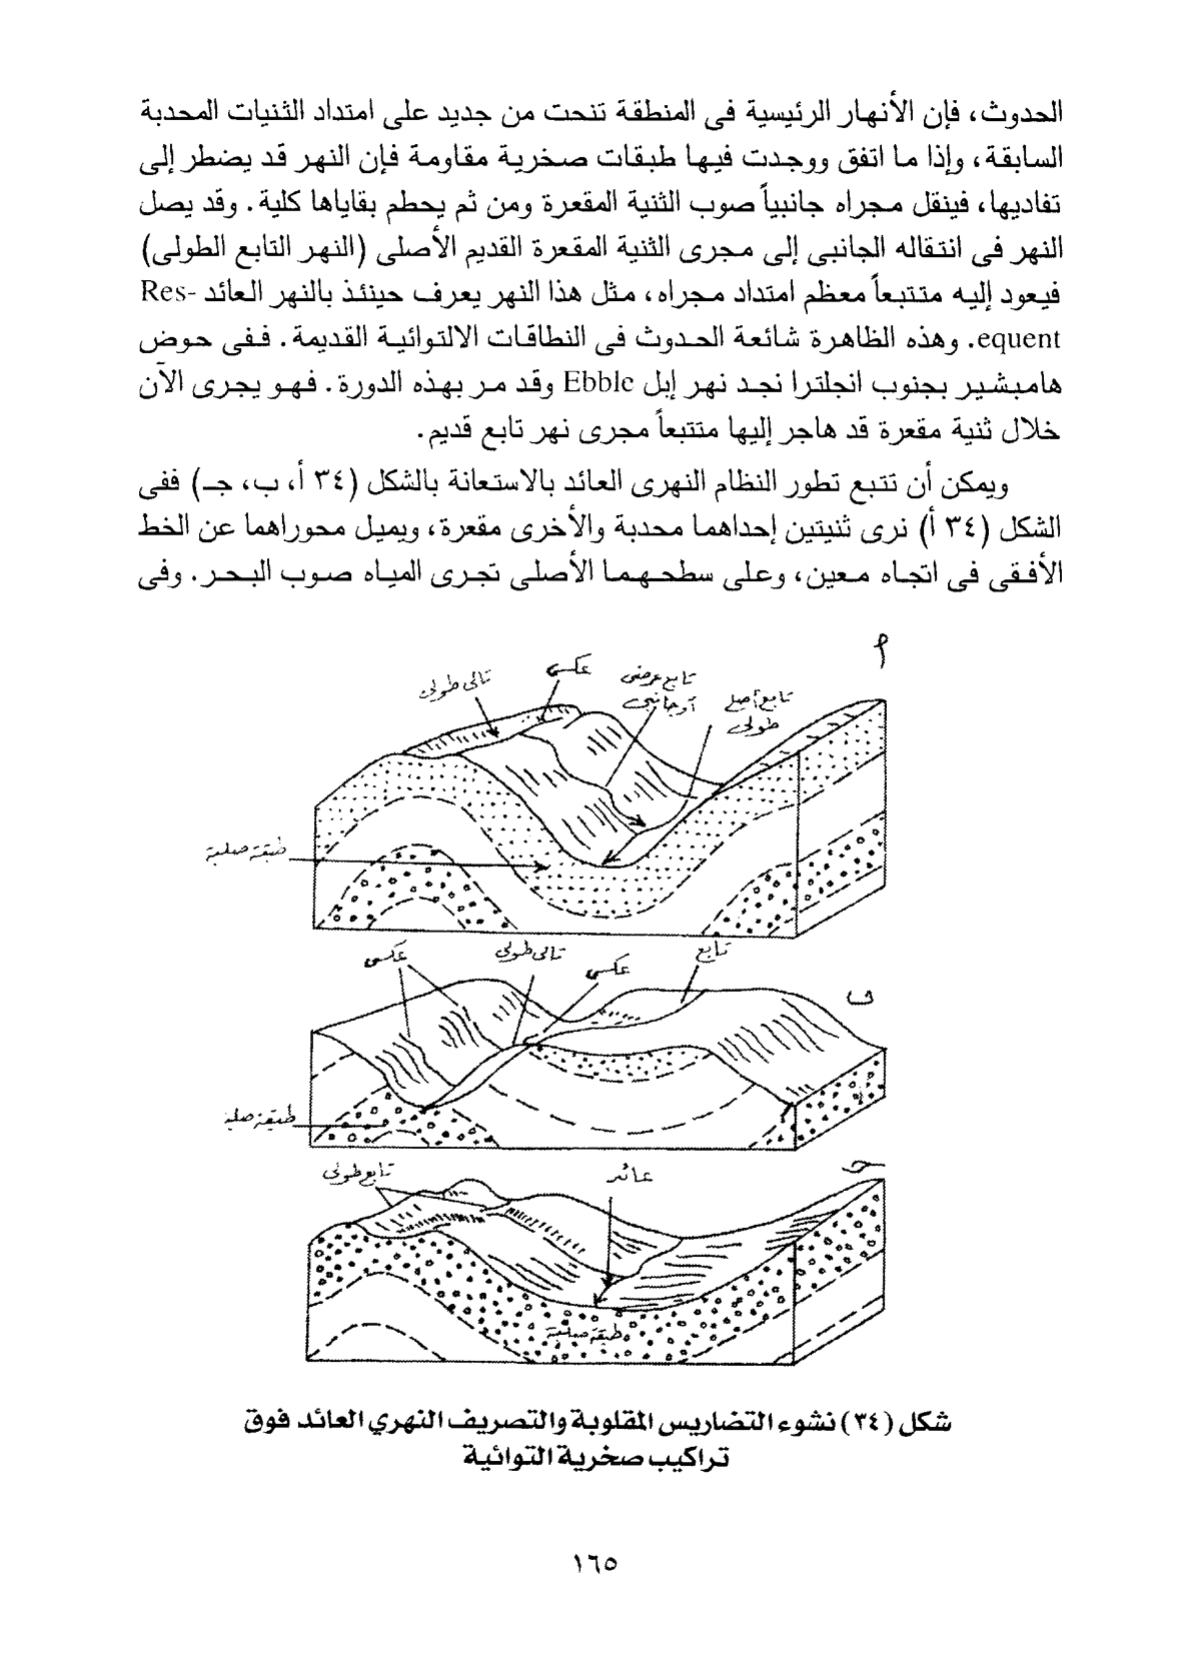 الحدوث، فإن الأنهار الرئيسية فى المنطقة تنحت من جديد على امتداد الثنيات المحدبة
السابقة، وإذا ما اتفق ووجدت فيها طبقات صخرية مقاومة فإن النهر قد يضطر إلى
تفاديها، فينقل مجراه جانبياً صوب الثنية المقعرة ومن ثم يحطم بقاياها كلية. وقد يصل
النهر فى انتقاله الجانبى إلى مجرى الثنية المقعرة القديم الأصلى (النهر التابع الطولى)
فيعود إليه متتبعاً معظم امتداد مجراه، مثل هذا النهر يعرف حينئذ بالنهر العائد Res-
equent. وهذه الظاهرة شائعة الحدوث فى النطاقات الالتوائية القديمة. ففى حوض
هامبشير بجنوب انجلترا نجد نهر إبل Ebble وقد مر بهذه الدورة. فهو يجرى الآن
خلال ثنية مقعرة قد هاجر إليها متتبعاً مجرى نهر تابع قديم.
ويمكن أن تتبع تطور النظام النهرى العائد بالاستعانة بالشكل (٣٤ أ، ب، جـ) ففى
الشكل (٣٤ أ) نرى ثنيتين إحداهما محدبة والأخرى مقعرة، ويميل محوراهما عن الخط
الأفقى فى اتجاه معين، وعلى سطحهما الأصلى تجرى المياه صوب البحر. وفى
أ
تالى طولى
عكسى
تابع عرضى
أو جانبى
تابع أصلى
طولى
طبقة صلبة
ب
عكسى
تالى طولى
عكسى
تابع
طبقة صلبة
جـ
تابع طولى
عائد
طبقة صلبة
شكل (٣٤) نشوء التضاريس المقلوبة والتصريف النهري العائد فوق
تراكيب صخرية التوائية
١٦٥